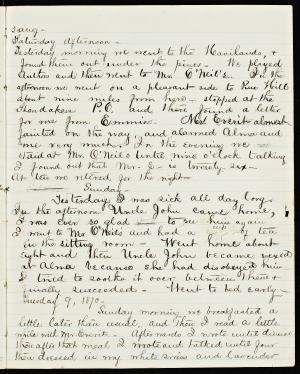 sang —
Saturday afternoon —
Yesterday morning we went to the Havilands, &
found them out under the pines — We played
Authors and then went to Mrs O'Neil's. In the
afternoon we went on a pleasant ride to Pine Hill
about nine miles from here — stopped at the
P.O. and there found a letter
for me from Emmie. Mrs Everit almost
fainted on the way, and alarmed Alma and
me very much. In the evening we
staid at Mrs O'Neil's until nine o'clock talking
I found out that Mr. E— is twenty-six —
At ten we retired for the night —
Sunday —
Yesterday I was sick all day long
In the afternoon Uncle John came home,
I was ever so glad to see him again
I went to Mrs O'Neil's and had a
in the sitting room — Went home about
eight and then Uncle John became vexed
at Alma because she had disobeyed him
I tried to soothe it over between them &
finally succeeded — Went to bed early —
Tuesday 9, 1870 —
Sunday morning we breakfasted a
little later than usual, and then I read a little
while with Mr. Everit — Afterwards I wrote until dinner
then after that meal I wrote and talked until four
then dressed in my white swiss and lavender